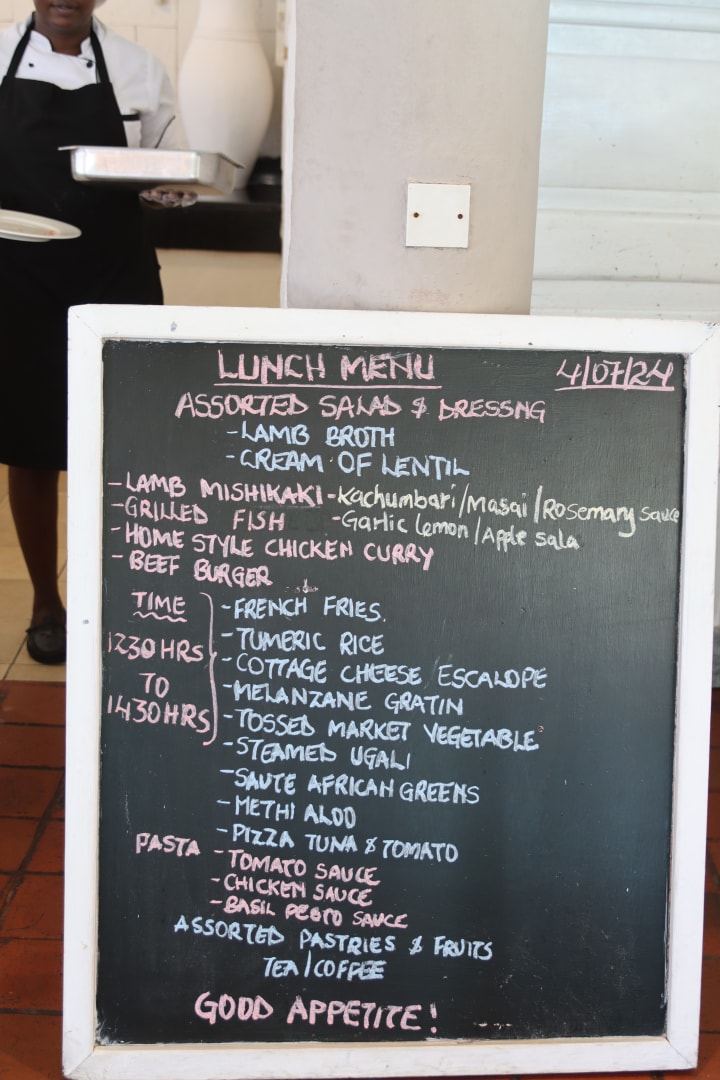 LUNCH MENU 4/07/24
ASSORTED SALAD & DRESSNG
-LAMB BROTH
-CREAM OF LENTIL
-LAMB MISHIKAKI -Kachumbari/Masai/Rosemary sauce
-GRILLED FISH -Garlic lemon/Apple sala
-HOME STYLE CHICKEN CURRY
-BEEF BURGER
TIME
1230HRS
TO
1430HRS
-FRENCH FRIES.
-TUMERIC RICE
-COTTAGE CHEESE ESCALOPE
-MELANZANE GRATIN
-TOSSED MARKET VEGETABLE
-STEAMED UGALI
-SAUTE AFRICAN GREENS
-METHI ALOO
-PIZZA TUNA & TOMATO
PASTA -TOMATO SAUCE
-CHICKEN SAUCE
-BASIL PESTO SAUCE
ASSORTED PASTRIES & FRUITS
TEA/COFFEE
GOOD APPETITE!